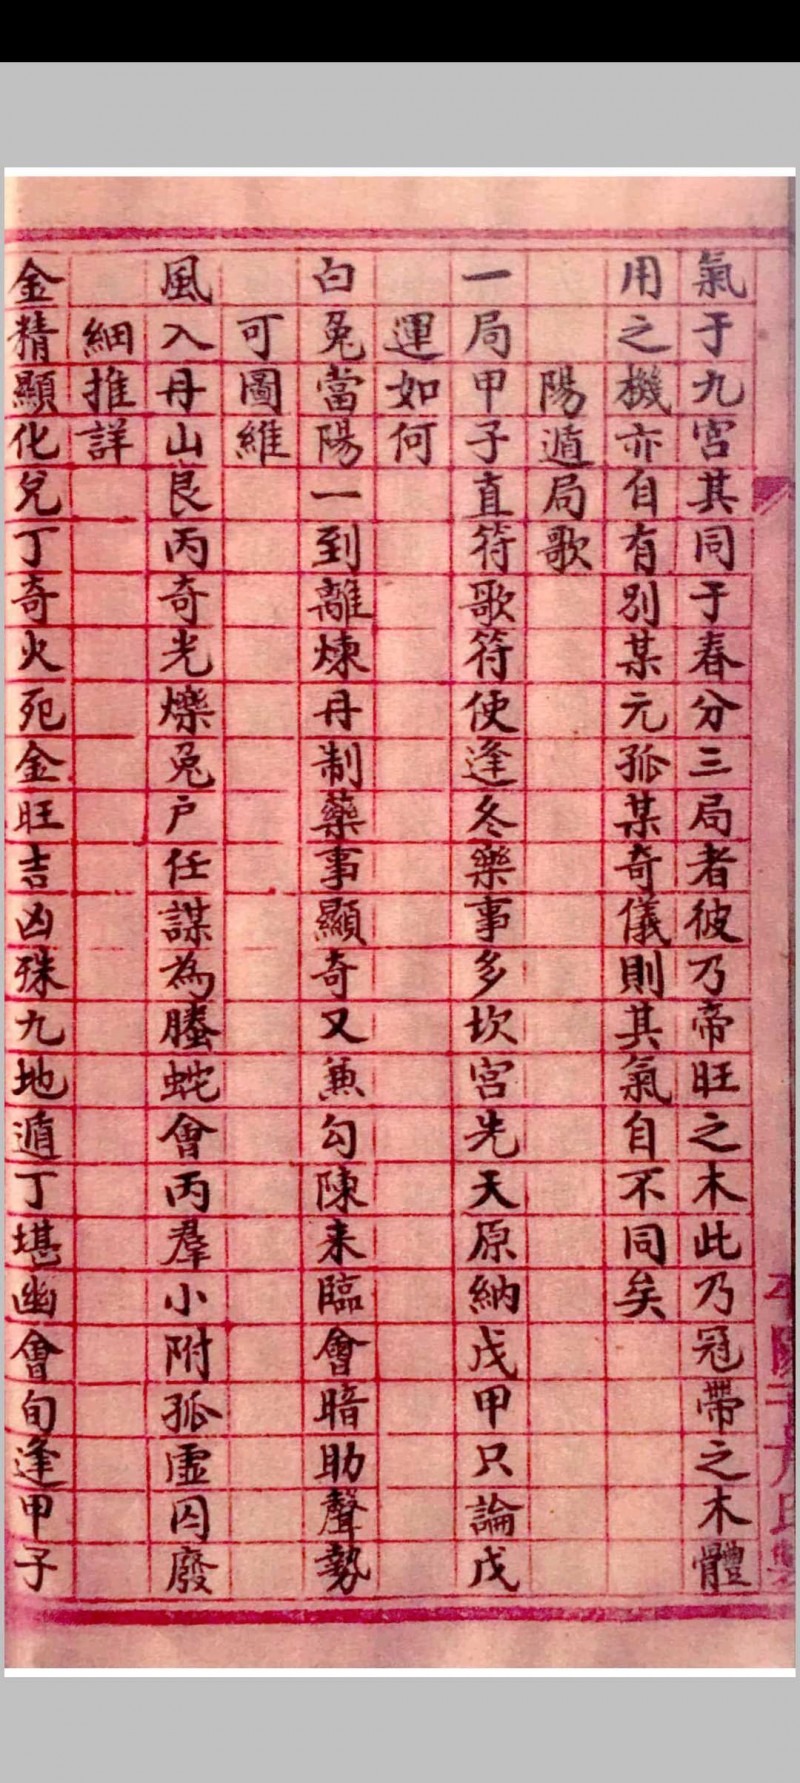 氣于九宮其同于春分三局者彼乃帝旺之木此乃冠帶之木體
用之機亦自有別某元孤某奇儀則其氣自不同矣
陽遁局歌
一局甲子直符歌符使逢冬樂事多坎宮先天原納戊甲只論戊
運如何
白兔當陽一到離煉丹制藥事顯奇又兼勾陳来臨會暗助聲勢
可圖維
風入丹山艮丙奇光爍兔户任謀為螣蛇會丙羣小附孤虛囚廢
細推詳
金精顯化兌丁奇火死金旺吉凶殊九地遁丁堪幽會旬逢甲子